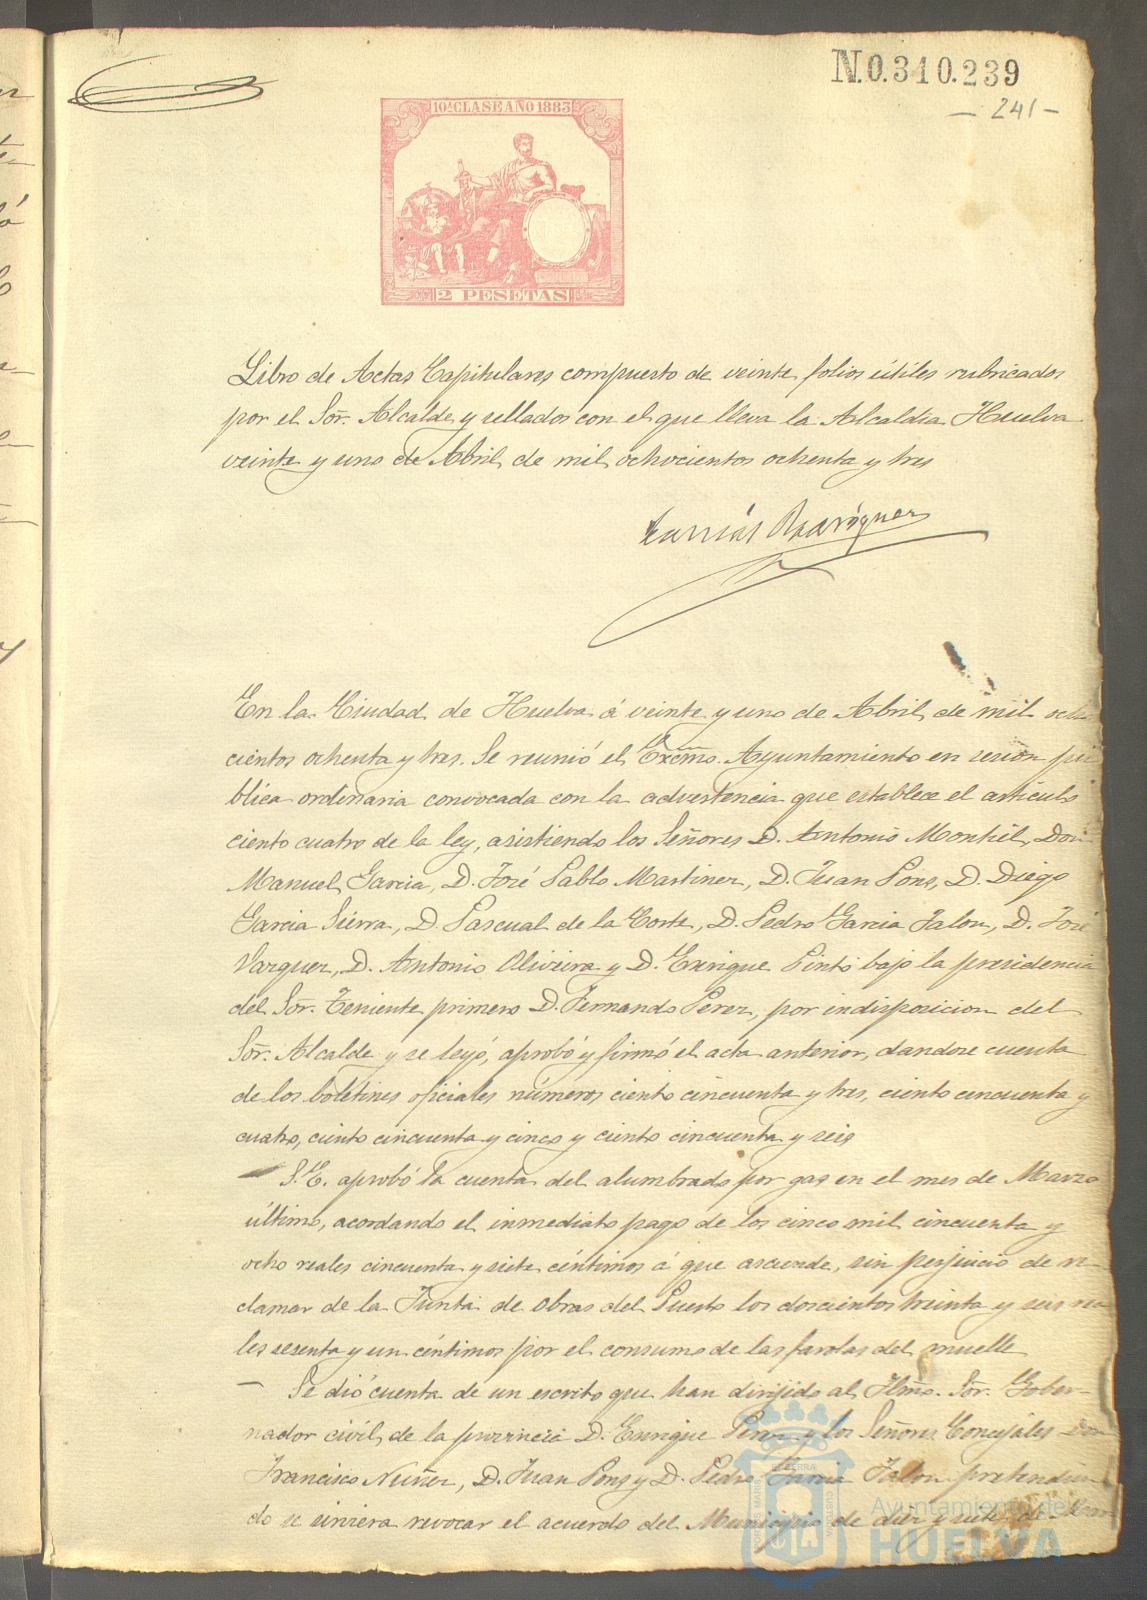 N.0.310.239
- 241 -
10ª CLASE AÑO 1883
2 PESETAS
Libro de Actas Capitulares compuesto de veinte folios útiles rubricados
por el Sor. Alcalde y sellados con el que lleva la Alcaldia Huelva
veinte y uno de Abril de mil ochocientos ochenta y tres
Rodriguez
En la Ciudad de Huelva á veinte y uno de Abril de mil ocho
cientos ochenta y tres. Se reunió el Excmo. Ayuntamiento en sesion pú
blica ordinaria convocada con la advertencia que establece el articulo
ciento cuatro de la ley, asistiendo los Señores D. Antonio Montiel, Don
Manuel Garcia, D. José Pablo Martinez, D. Juan Pons, D. Diego
Garcia Sierra, D. Pascual de la Corte, D. Pedro Garcia Jalon, D. José
Vazquez, D. Antonio Oliveira y D. Enrique Pinto bajo la presidencia
del Sor. Teniente primero D. Fernando Perez, por indisposicion del
Sor. Alcalde y se leyó, aprobó y firmó el acta anterior, dandose cuenta
de los boletines oficiales números ciento cincuenta y tres, ciento cincuenta y
cuatro, ciento cincuenta y cinco y ciento cincuenta y seis
S.E. aprobó la cuenta del alumbrado por gas en el mes de Marzo
último, acordando el inmediato pago de los cinco mil cincuenta y
ocho reales cincuenta y siete céntimos á que asciende, sin perjuicio de re-
clamar de la Junta de Obras del Puerto los doscientos treinta y seis rea
les sesenta y un céntimos por el consumo de las farolas del muelle
- Se dió cuenta de un escrito que han dirijido al Ilmo. Sor. Gober-
nador civil de la provincia D. Enrique Perez y los Señores Concejales Don
Francisco Nuñez, D. Juan Pons y D. Pedro Garcia Jalon pretendien
do se sirviera revocar el acuerdo del Municipio de diez y siete de
Ayuntamiento de
HUELVA